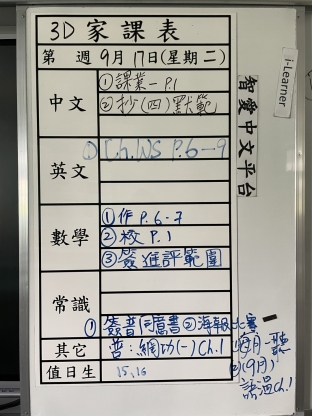 3D 家課表
第 週 9月 17日(星期二)
中文
①課業一 P.1
②抄(四)默範
英文
① Ch.WS P.6-9
數學
①作 P.6-7
②校 P.1
③簽進評範圍
常識
① 簽普同意書 ②海報比賽
其它
普：網功(一) Ch.1
值日生
15, 16
i-Learner
智愛中文平台